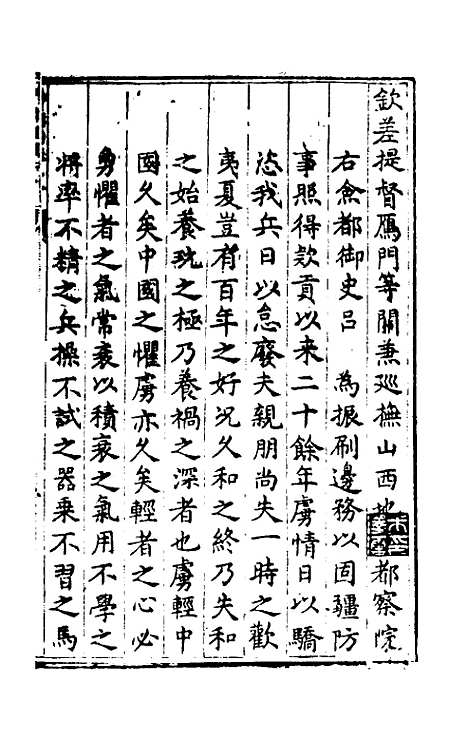 欽差提督鴈門等關兼巡撫山西地方都察院
右僉都御史呂　為振刷邊務以固疆防
事照得欵貢以來二十餘年虜情日以驕
恣我兵日以怠廢夫親朋尚失一時之歡
夷夏豈有百年之好况久和之終乃失和
之始養玩之極乃養禍之深者也虜輕中
國久矣中國之懼虜亦久矣輕者之心必
勇懼者之氣常衰以積衰之氣用不學之
將率不精之兵操不試之器乗不習之馬